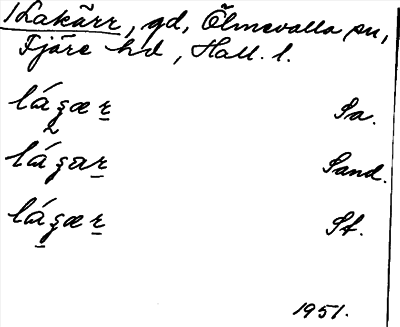 1 Lakärr, gd, Ölmevalla sn,
Fjäre hd, Hall. l.
lágær Sa.
lágar Sand.
lágær St.
1951.